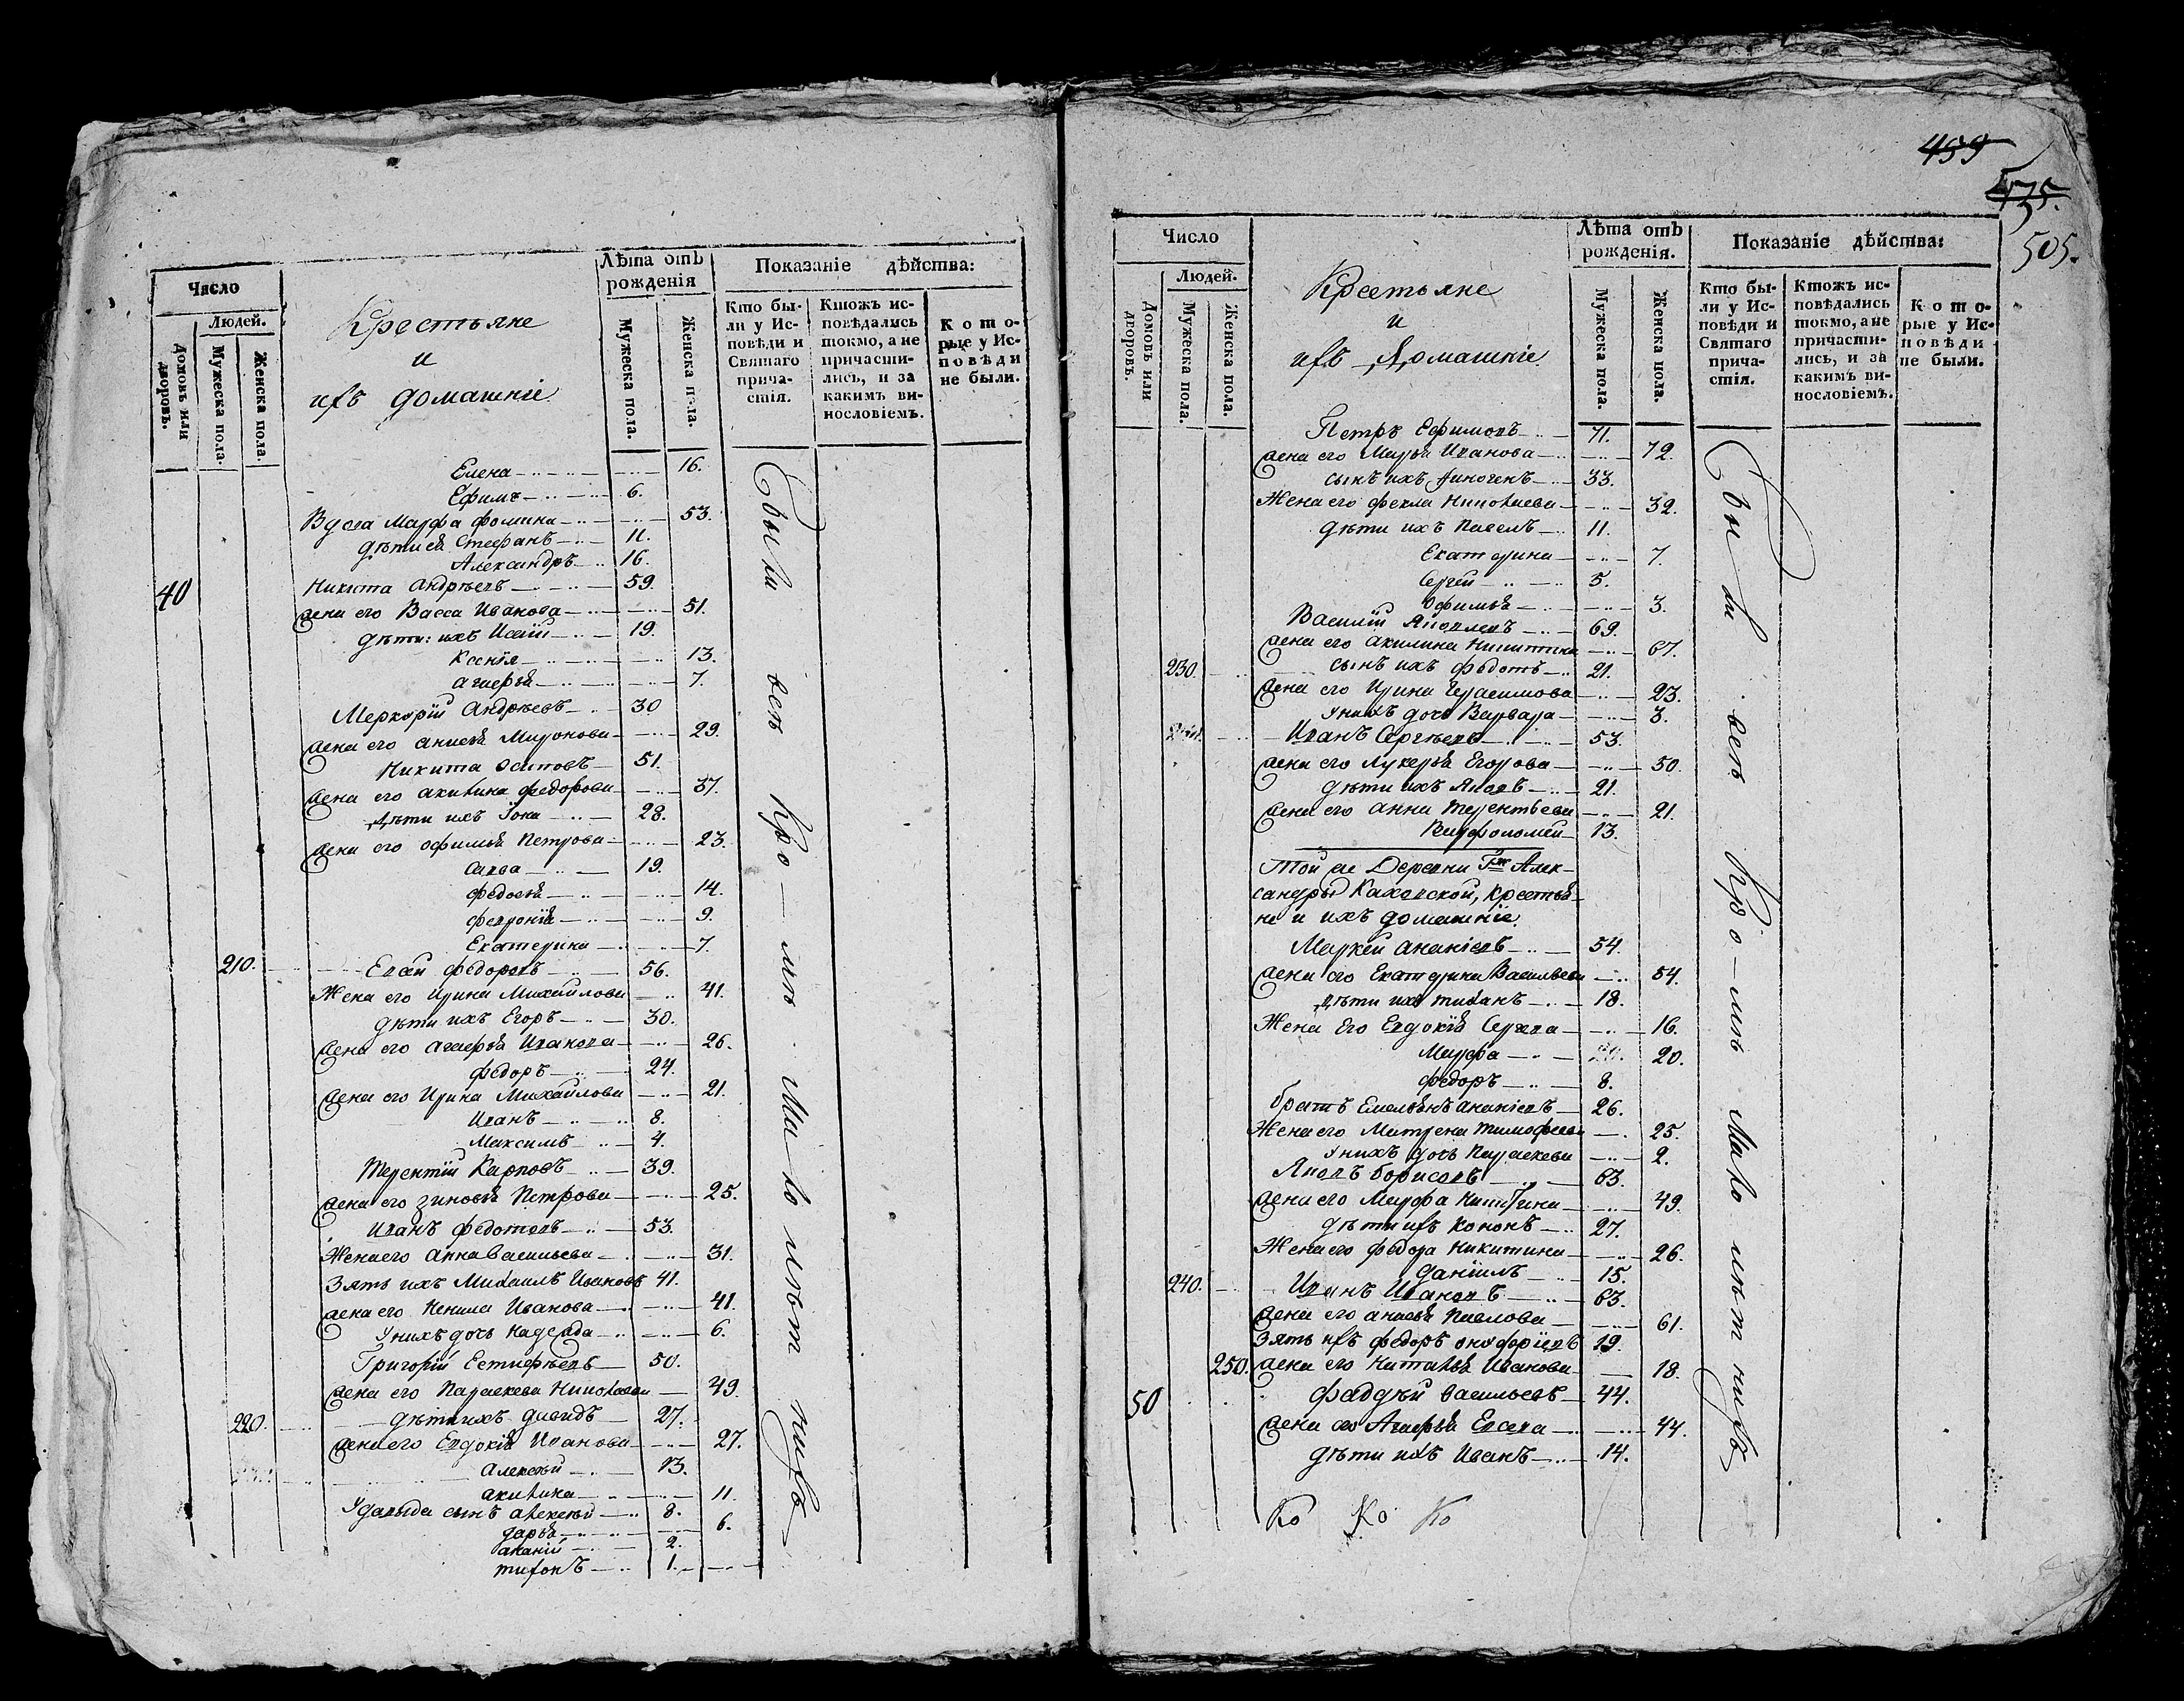 Число
Людей.
Домовъ или дворовъ.
Мужеска пола.
Женска пола.
Крестьяне
и
ихъ домашніе
Лѣта отъ рождения
Мужеска пола.
Женска пола.
Показаніе дѣйства:
Кто бы-
ли у Ис-
повѣди и
Святаго
прича-
стія.
Ктожъ ис-
повѣдались
токмо, а не
причасти-
лись, и за
какимъ ви-
нословіемъ.
Кото-
рые у Ис-
повѣди
не были.
Елена 16.
Ефимъ 6.
Вдова Марфа Фомина 53.
дѣти ея Стефанъ 11.
Александръ 16.
40 Никита Андрѣевъ 59.
жена его Васса Иванова 51.
дѣти: ихъ Исаій 19.
Ксенія 13.
Агафья 7.
Меркурій Андрѣевъ 30
жена его Анисья Миронова 29.
Никита Осиповъ 51.
жена его Акилина Федорова 37.
дѣти ихъ Іона 28.
жена его Офимья Петрова 23.
Савва 19.
Федосья 14.
Февронія 9.
Екатерина 7.
210. Евсѣй Федоровъ 56.
Жена его Ирина Михайлова 41.
дѣти ихъ Егоръ 30.
жена его Агафья Иванова 26.
Федоръ 24.
жена его Ирина Михайлова 21.
Иванъ 8.
Максимъ 4.
Терентій Карповъ 39.
жена его Зиновья Петрова 25.
Иванъ Федотовъ 53.
Жена его Анна Васильева 31.
Зять ихъ Михаилъ Ивановъ 41.
жена его Ненила Иванова 41.
У нихъ дочь Надежда 6.
Григорій Естифѣевъ 50.
жена его Параскева Николаева 49
220. дѣти ихъ Давидъ 27.
жена его Евдокія Иванова 27.
Алексѣй 13.
Акилина 11.
У Давыда сынъ Алексѣй 8.
Дарья 6.
Ананій 2.
Тихонъ 1.
Были всѣ Кро-мѣ Мало лѣт нихъ
499
535.
505.
Число
Людей.
Домовъ или дворовъ.
Мужеска пола.
Женска пола.
Крестьяне
и
ихъ Домашніе
Лѣта отъ рожденія.
Мужеска пола.
Женска пола.
Показаніе дѣйства:
Кто бы-
ли у Ис-
повѣди и
Святаго
прича-
стія.
Ктожъ ис-
повѣдались
токмо, а не
причасти-
лись, и за
какимъ ви-
нословіемъ.
Кото-
рые у Ис-
повѣди
не были.
Петръ Ефимовъ 71.
жена его Марья Иванова 72.
сынъ ихъ Финогенъ 33.
Жена его Фекла Николаева 32.
дѣти ихъ Павелъ 11.
Екатерина 7.
Сергей 5.
Офимья 3.
Василій Яковлевъ 69.
жена его Акилина Никитина 67.
230. сынъ ихъ Федотъ 21.
жена его Ирина Герасимова 23.
У нихъ дочь Варвара 3.
Иванъ Сергѣевъ 53.
жена его Лукерья Егорова 50.
дѣти ихъ Яковъ 21.
жена его Анна Терентьева 21.
Варфоломей 13.
Той же Деревни Гжи Алек-
сандры Каховской, крестья-
не и ихъ домашніе.
Маркей Ананіевъ 54.
жена его Екатерина Васильева 54.
дѣти ихъ 18.
Жена Его Евдокія 16.
Марфа 20.
Федоръ 8.
братъ Емельянъ Ананіевъ 26.
Жена его Матрена Тимофеева 25.
У нихъ дочь Параскева 2.
Яковъ Борисовъ 63.
жена его Марфа Никитина 49.
дѣти ихъ Кононъ 27.
Жена его Федора Никитина 26.
Даніилъ 15.
240. Иванъ Ивановъ 63.
жена его Анисья Павлова 61.
Зять ихъ Федоръ Онуфріевъ 19.
250. жена его Наталья Иванова 18.
50 Фаддѣй Васильевъ 44.
жена его Агафья 44.
дѣти ихъ Иванъ 14.
Были всѣ Кро-мѣ Мало лѣт нихъ
Ко Ко Ко